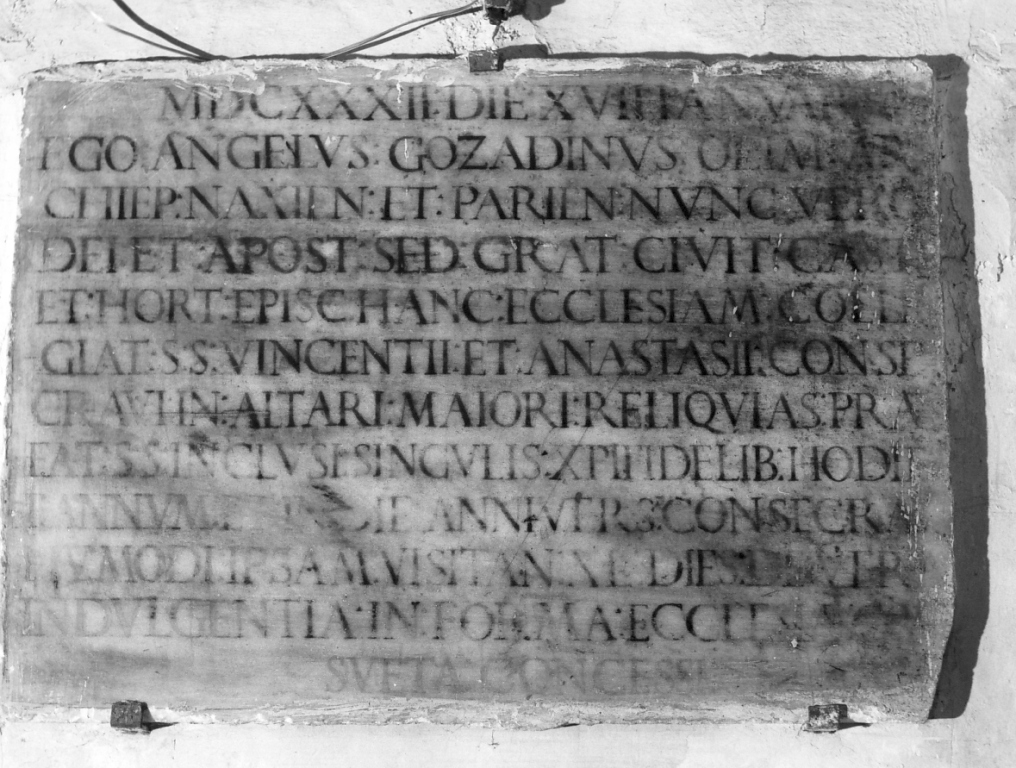 MDCXXXII·DIE XVIII
EGO ANGELVS GOZADINVS OLIM AR
CHIEP:NAXIEN:ET:PARIEN:NVNC VERO
DEI ET APOST SED:GRAT CIVIT:CAST
ET:HORT:EPISC HANC:ECCLESIAM COLLE
GIAT:S S:VINCENTII:ET ANASTASII:CONSE
CRAVI IN:ALTARI:MAIORI:RELIQVIAS:PRÆ
FAT:S S:INCLVSI SINGVLIS:XPI FIDELIB:HODIE
ANNVM DIE ANNIVERS:CONSECRA
IPSAM VISITAN XL DIES
INDVLGENTIA:IN FORMA:ECCLESIÆ
SVETA CONCESSI